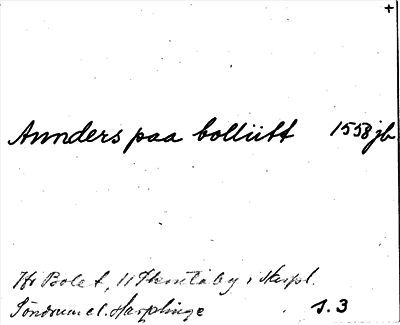 +
Annders paa bolliitt 1558 jb
Hr Bolet, i Harpl.
Söndrum el. Harplinge s. 3